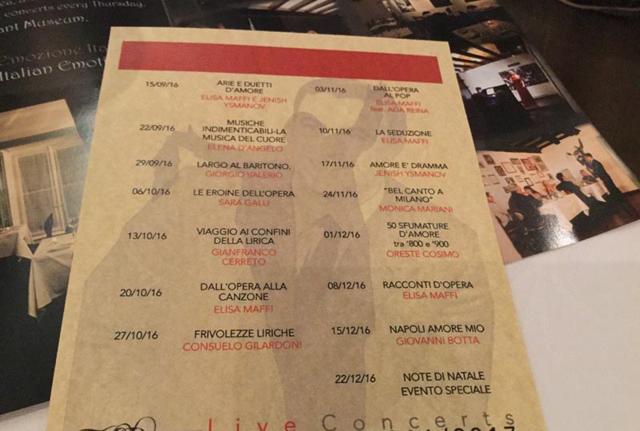 concerts every Thursday,
ant Museum.
Emozione Ita
Italian Emoti
15/09/16
ARIE E DUETTI
D'AMORE
ELISA MAFFI E JENISH
YSMANOV
22/09/16
MUSICHE
INDIMENTICABILI-LA
MUSICA DEL CUORE
ELENA D'ANGELO
29/09/16
LARGO AL BARITONO.
GIORGIO VALERIO
06/10/16
LE EROINE DELL'OPERA
SARA GALLI
13/10/16
VIAGGIO AI CONFINI
DELLA LIRICA
GIANFRANCO
CERRETO
20/10/16
DALL'OPERA ALLA
CANZONE
ELISA MAFFI
27/10/16
FRIVOLEZZE LIRICHE
CONSUELO GILARDONI
03/11/16
DALL'OPERA
AL POP
ELISA MAFFI
feat. AGA REINA
10/11/16
LA SEDUZIONE
ELISA MAFFI
17/11/16
AMORE E' DRAMMA
JENISH YSMANOV
24/11/16
"BEL CANTO A
MILANO"
MONICA MARIANI
01/12/16
50 SFUMATURE
D'AMORE
tra '800 e '900
ORESTE COSIMO
08/12/16
RACCONTI D'OPERA
ELISA MAFFI
15/12/16
NAPOLI AMORE MIO
GIOVANNI BOTTA
22/12/16
NOTE DI NATALE
EVENTO SPECIALE
Live Concerts